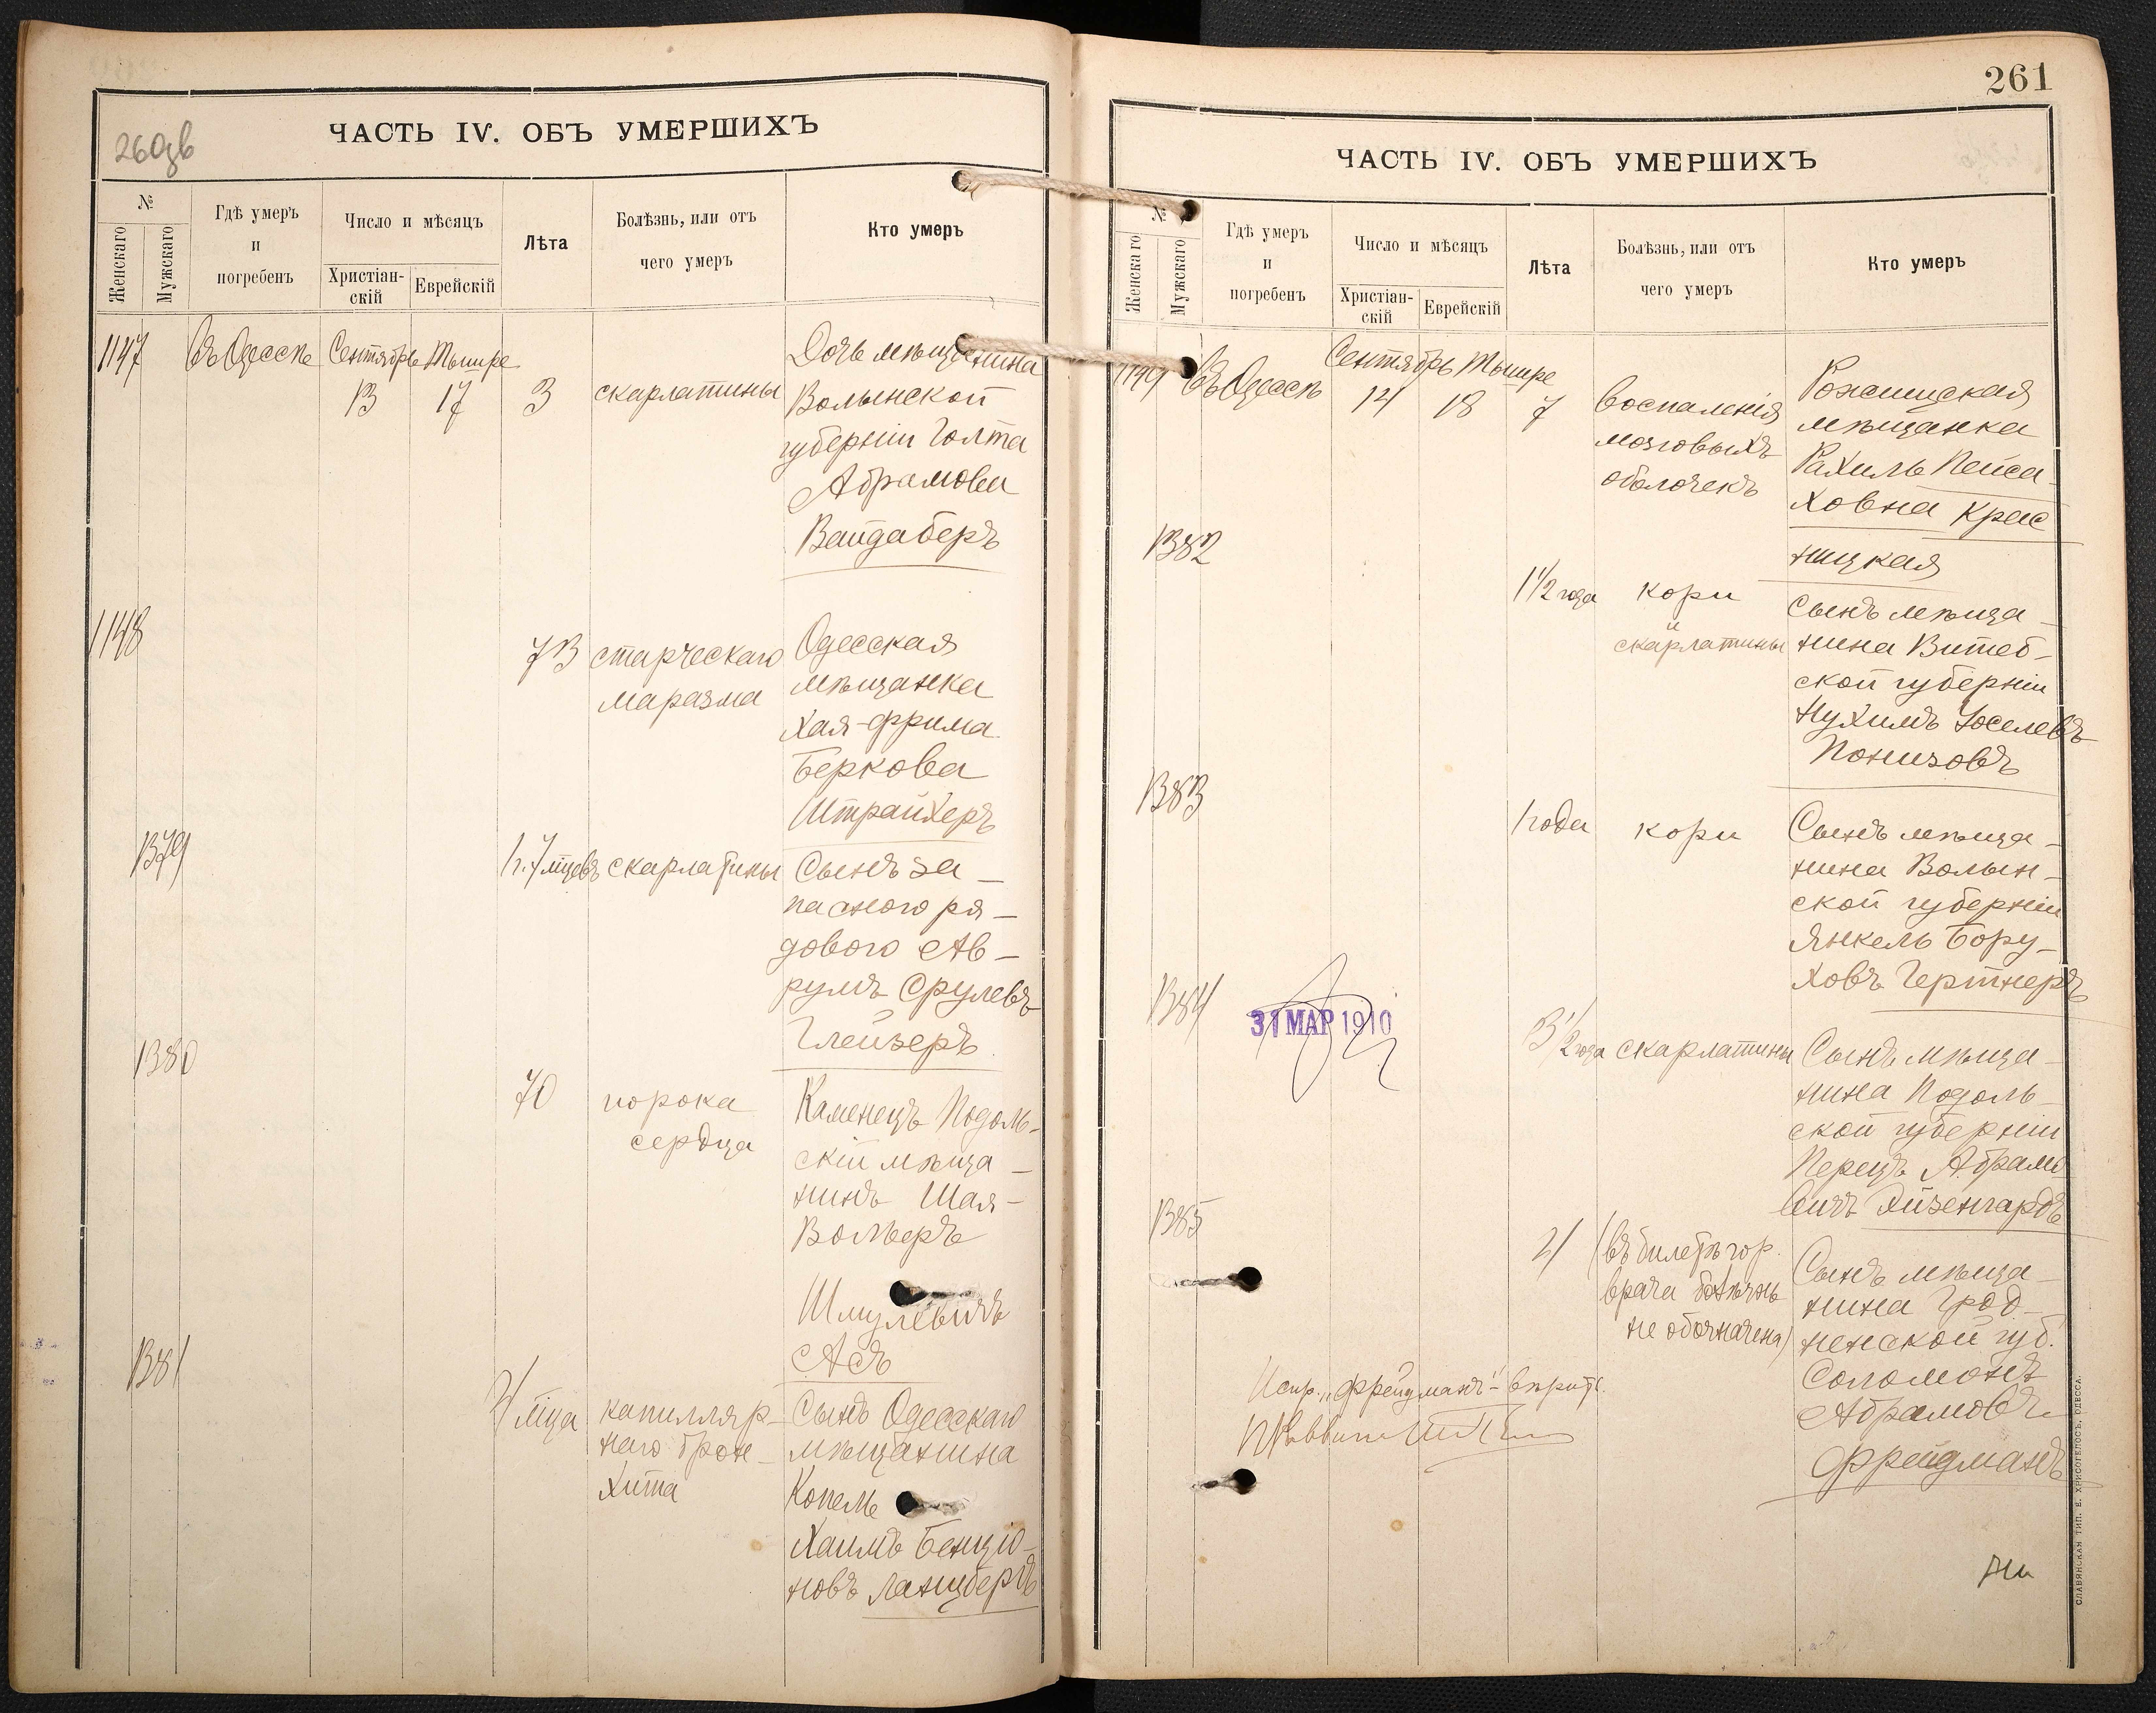 260 об
ЧАСТЬ IV. ОБЪ УМЕРШИХЪ
№
Женскаго
Мужскаго
Гдѣ умеръ
и
погребенъ
Число и мѣсяцъ
Христіан-
скій
Еврейскій
Лѣта
Болѣзнь, или отъ
чего умеръ
Кто умеръ
1147
Въ Одессѣ
Сентябрь
Тышре
13
17
3
скарлатины
Дочь мѣщанина
Волынской
губерніи Голта
Абрамова
Вайдаберъ
1148
73
старческаго
маразма
Одесская
мѣщанка
Хая-Фрима
Беркова
Штрайхеръ
1379
1 г. 7 мцевъ
скарлатины
Сынъ за-
паснаго ря-
дового Ав-
румъ Срулевъ
Глейзеръ
1380
70
порока
сердца
Каменецъ Подоль-
скій мѣща-
нинъ Шая-
Вольеръ
Шмулевичъ
Асъ
1381
мца
капилляр-
наго брон-
хита
Сынъ Одесскаго
мѣщанина
Копель
Хаимъ Бенціо-
новъ Ланцбергъ
261
ЧАСТЬ IV. ОБЪ УМЕРШИХЪ
№
Женскаго
Мужскаго
Гдѣ умеръ
и
погребенъ
Число и мѣсяцъ
Христіан-
скій
Еврейскій
Лѣта
Болѣзнь, или отъ
чего умеръ
Кто умеръ
1149
Въ Одессѣ
Сентябрь
Тышре
14
18
7
воспаленія
мозговыхъ
оболочекъ
Рожницкая
мѣщанка
Рахиль Пейса-
ховна Крас
ницкая
1382
1 1/2 года
кори
и
скарлатины
Сынъ мѣща-
нина Витеб-
ской губерніи
Нухимъ Іоселевъ
Понизовъ
1383
1 года
кори
Сынъ мѣща-
нина Волын-
ской губерніи
Янкель Бору-
ховъ Гертнеръ
1384
31 МАР 1910
3 1/2 года
скарлатины
Сынъ мѣща-
нина Подоль-
ской губерніи
Перецъ Абрамо
вичъ Эйзенгардъ
1385
21
(въ билетѣ гор.
врача болѣзнь
не обозначена)
Сынъ мѣща-
нина Грод-
ненской губ.
Соломонъ
Абрамовъ
Фрейдманъ
Испр. "Фрейдманъ" - вѣрить.
СЛАВЯНСКАЯ ТИП. Е. ХРИСОГЕЛОСЪ, ОДЕССА.